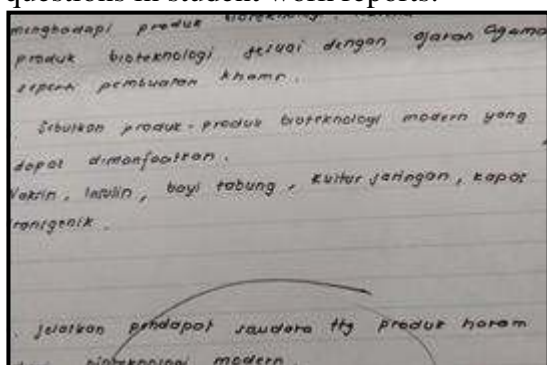 questions in student work reports.
menghadapi produk bioteknologi.
produk bioteknologi sesuai dengan ajaran agama
seperti pembuatan khamr.
Sebutkan produk-produk bioteknologi modern yang
dapat dimanfaatkan.
Vaksin, Insulin, bayi tabung, kultur jaringan, kapas
transgenik.
jelaskan pendapat saudara ttg produk haram
bioteknologi modern.